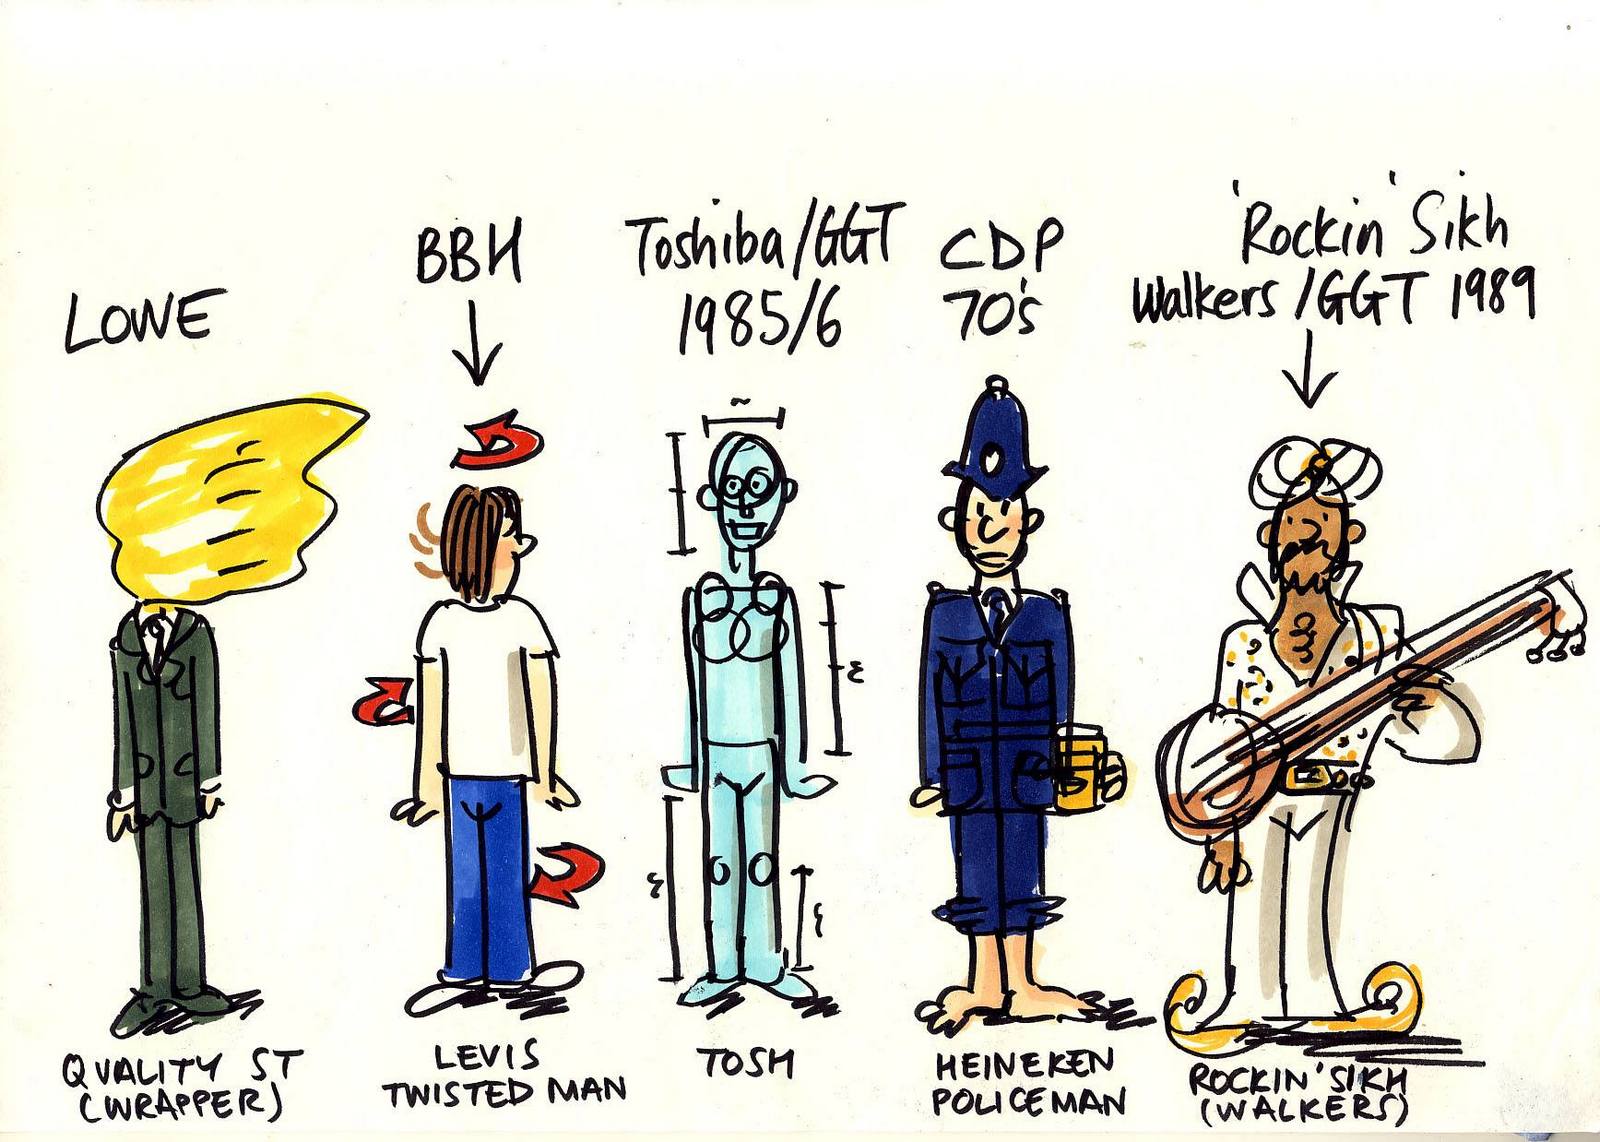 LOWE
BBH
Toshiba/GGT
1985/6
CDP
70's
'Rockin' Sikh
Walkers/GGT 1989
QUALITY ST
(WRAPPER)
LEVIS
TWISTED MAN
TOSH
HEINEKEN
POLICEMAN
ROCKIN' SIKH
(WALKERS)